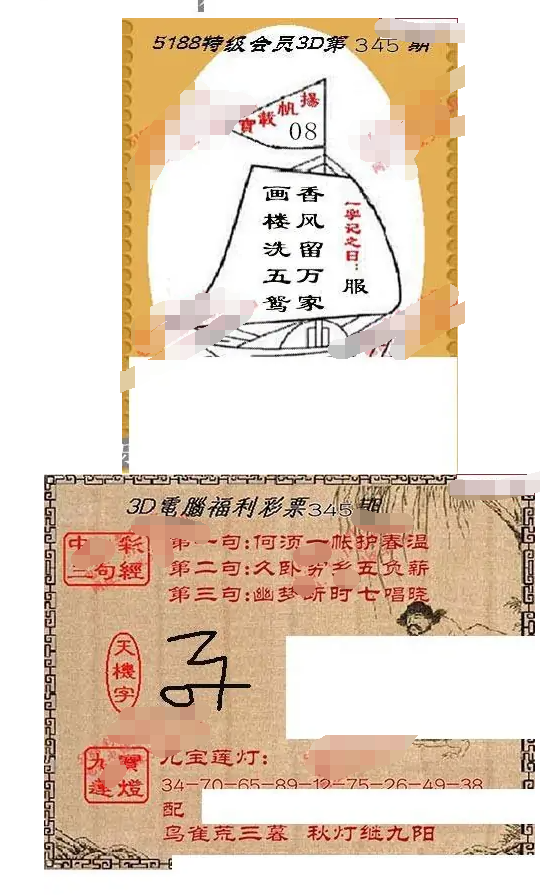 5188特级会员3D第 345 期
揚帆載寶
08
香风留万家
画楼洗五鸳
一字记之曰：
服
3D電腦福利彩票345 期
中 彩
三句經
第一句:何须一帐护春温
第二句:久卧穷乡五负薪
第三句:幽梦 时七唱晓
天機字
九 寶
蓮燈
九宝莲灯:
34-70-65-89-12-75-26-49-38
配
鸟雀荒三暮 秋灯继九阳